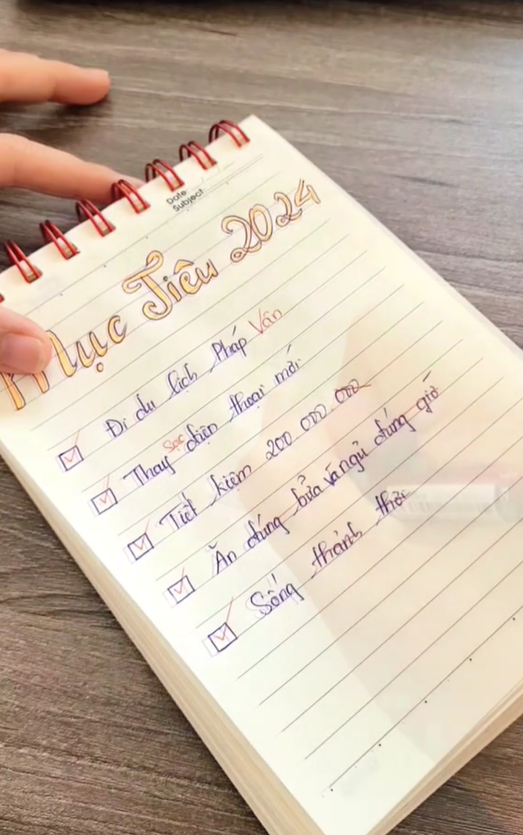 Date
Subject
Mục Tiêu 2024
Đi du lịch Pháp Vân
Thay sạc điện thoại mới
Tiết kiệm 200 000 000
Ăn đúng bữa và ngủ đúng giờ
Sống thảnh thơi